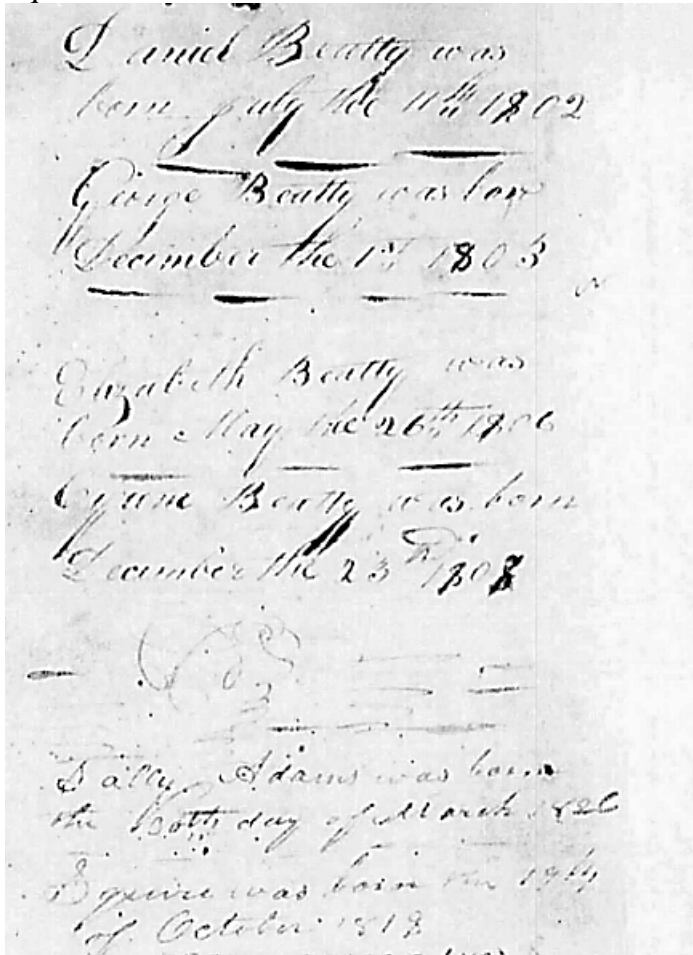 Daniel Beatty was
born July the 11th 1802
George Beatty was born
December the 1st 1803
Elizabeth Beatty was
born May the 26th 1806
Cyrene Beatty was born
December the 23th 1808
Sally Adams was born
the day of March 1826
Squire was born the 19th
of October 1818